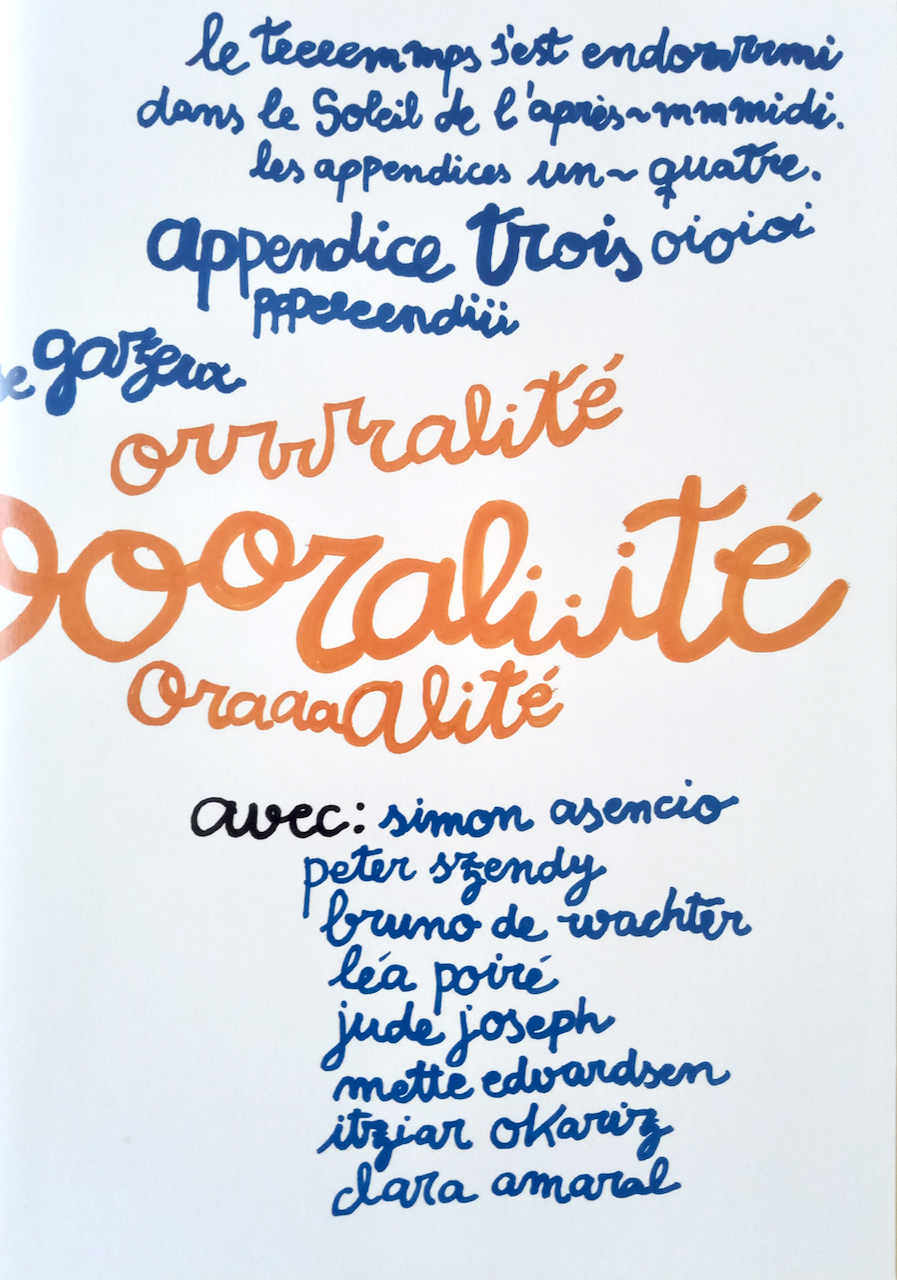 le teeeemmps s'est endorrrrmi
dans le Soleil de l'après~mmmidi.
les appendices un~quatre.
appendice trois oioioi
pppeeeendiii
gazeux
orrrralité
oooraliiité
oraaaalité
avec: simon asencio
peter szendy
bruno de wachter
léa poiré
jude joseph
mette edvardsen
itziar okariz
clara amaral